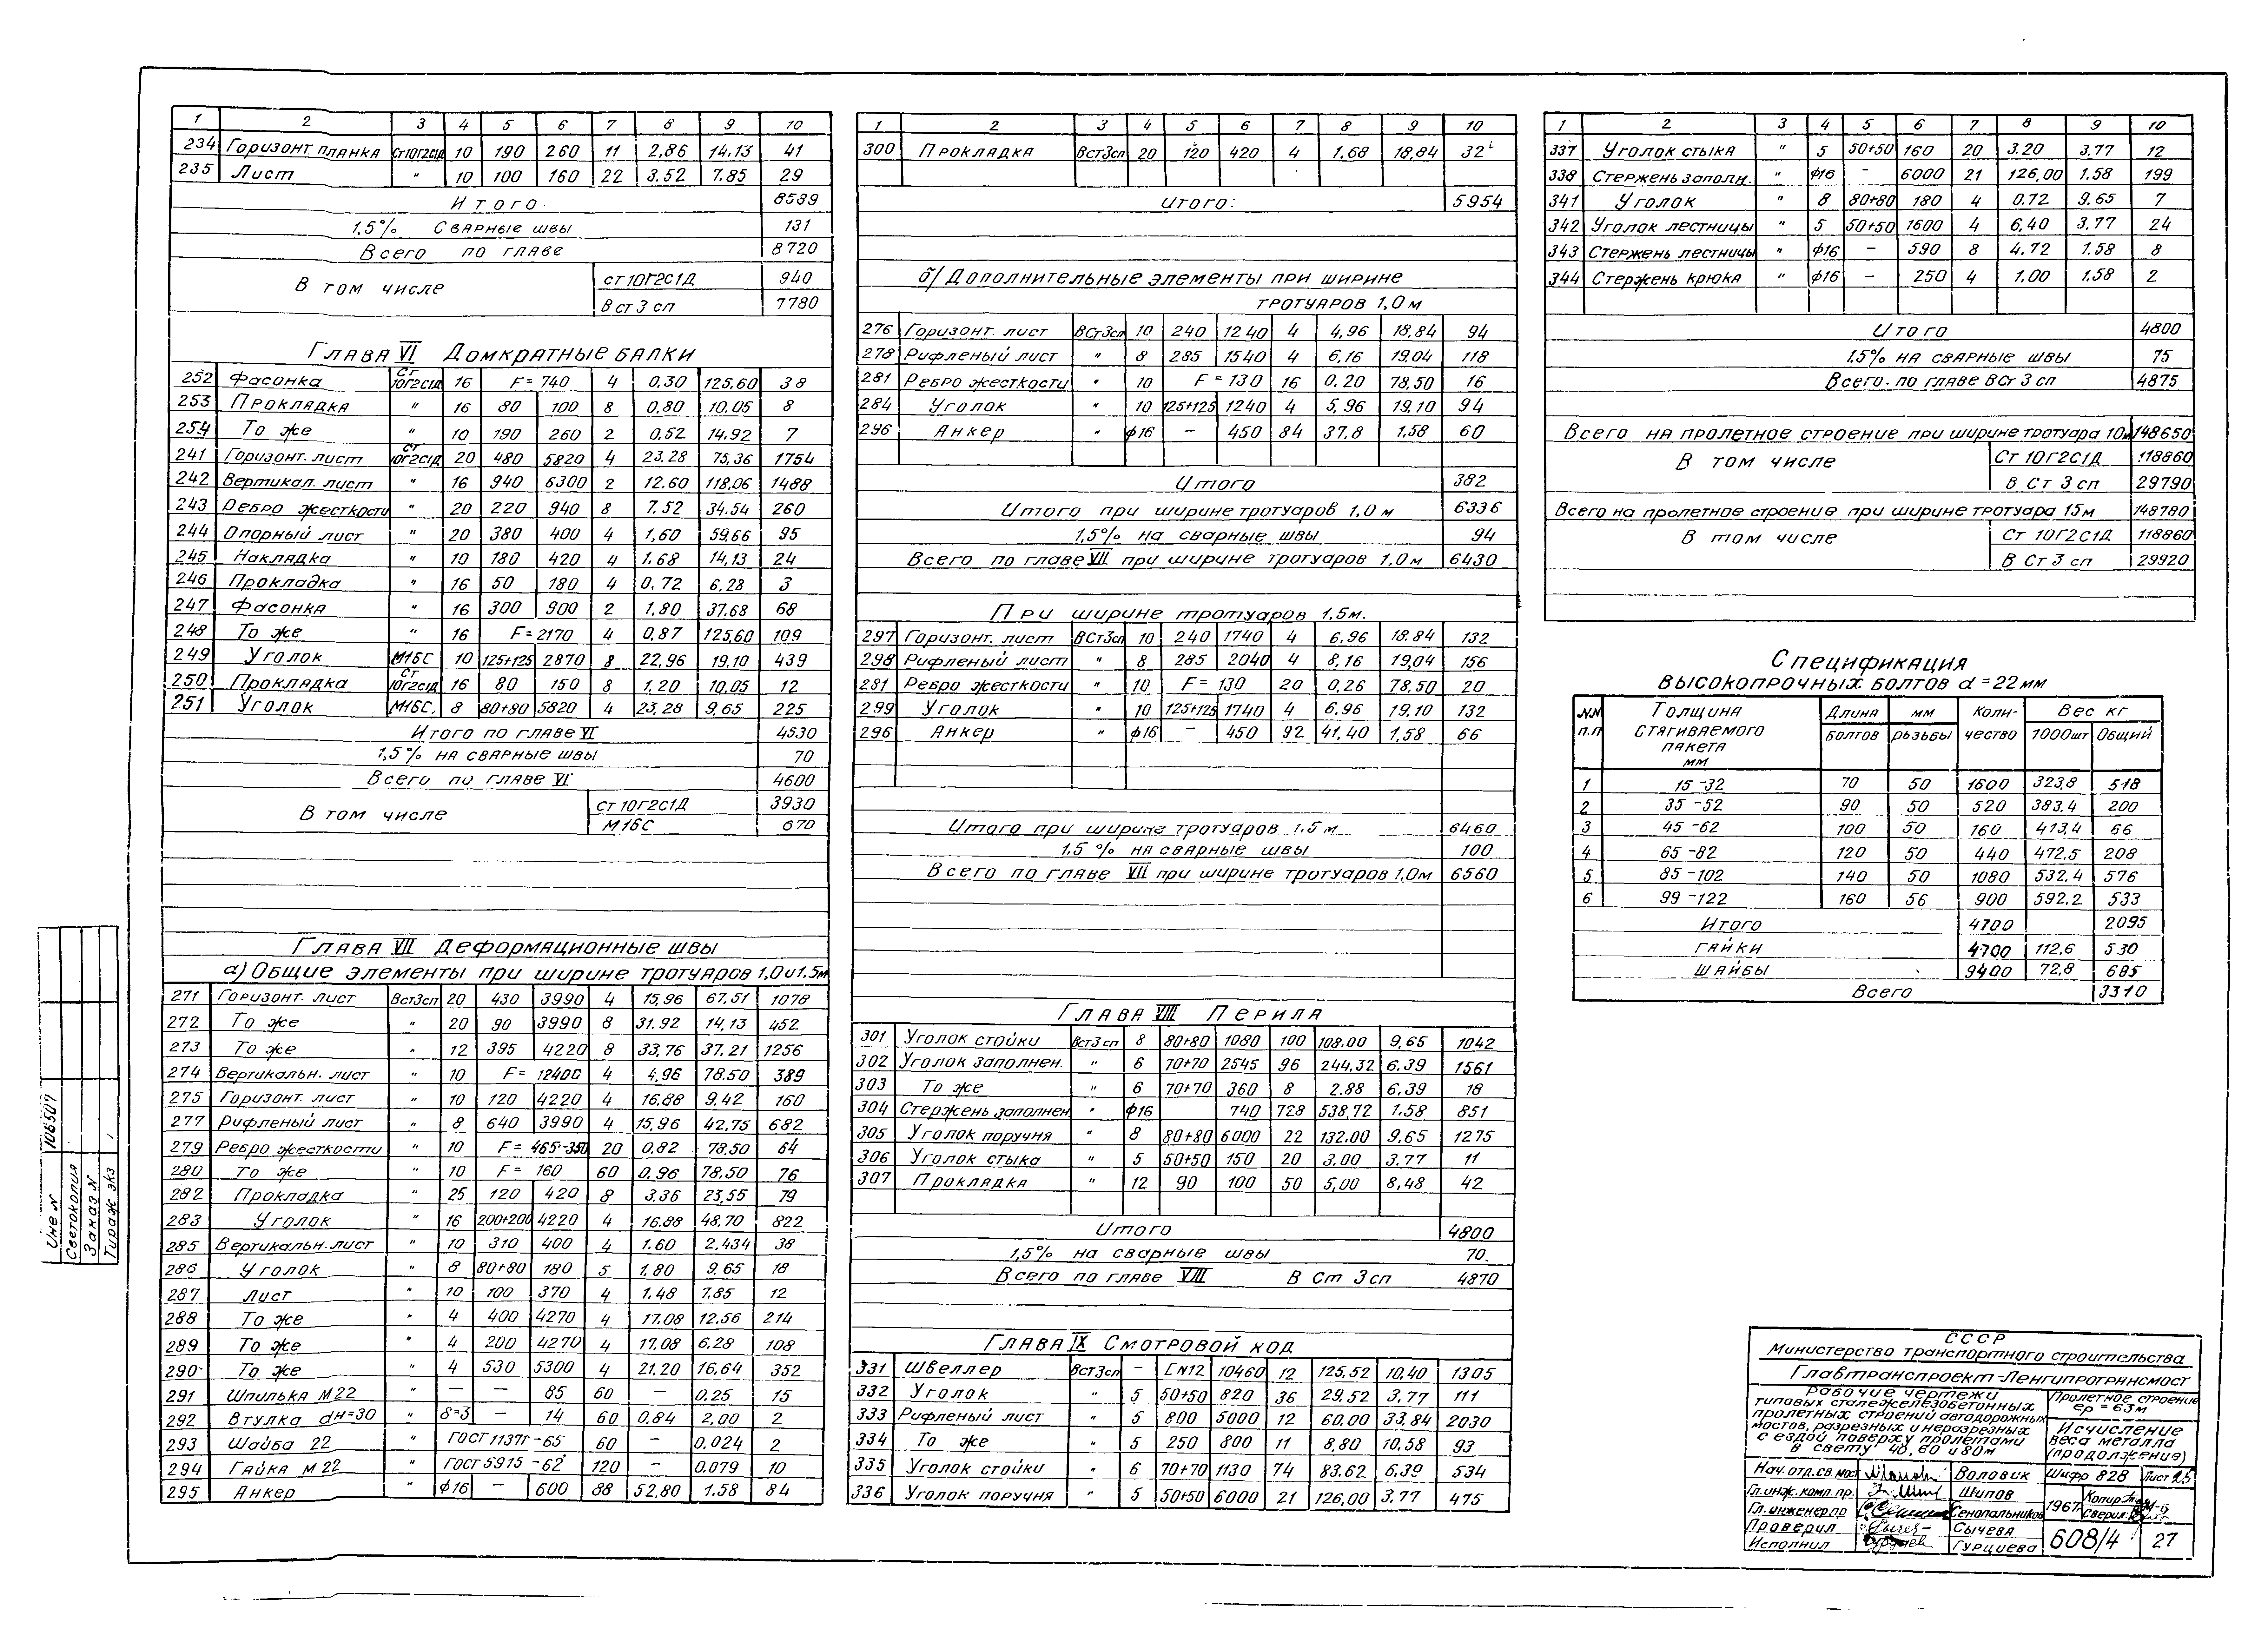 1 2 3 4 5 6 7 8 9 10
234 Горизонт. планка Ст10Г2С1Д 10 190 260 11 2,86 14,13 41
235 Лист " 10 100 160 22 3.52 7.85 29
Итого. 8589
1,5% Сварные швы 131
Всего по главе 8720
В том числе ст 10Г2С1Д 940
В ст 3 сп 7780
Глава VI Домкратные балки
252 Фасонка Ст 10Г2С1Д 16 F=740 4 0,30 125,60 38
253 Прокладка " 16 80 100 8 0,80 10,05 8
254 То же " 10 190 260 2 0,52 14,92 7
241 Горизонт. лист Ст 10Г2С1Д 20 480 5820 4 23,28 75,36 1754
242 Вертикал. лист " 16 940 6300 2 12.60 118,06 1488
243 Ребро жесткости " 20 220 940 8 7.52 34.54 260
244 Опорный лист " 20 380 400 4 1,60 59,66 95
245 Накладка " 10 180 420 4 1.68 14,13 24
246 Прокладка " 16 50 180 4 0,72 6,28 3
247 Фасонка " 16 300 900 2 1,80 37.68 68
248 То же " 16 F=2170 4 0,87 125,60 109
249 Уголок М16С 10 125+125 2870 8 22,96 19,10 439
250 Прокладка Ст 10Г2С1Д 16 80 150 8 1,20 10,05 12
251 Уголок М16С. 8 80+80 5820 4 23,28 9,65 225
Итого по главе VI 4530
1,5% на сварные швы 70
Всего по главе VI 4600
В том числе ст 10Г2С1Д 3930
М16С 670
Глава VII Деформационные швы
а) Общие элементы при ширине тротуаров 1,0 и 1.5м
271 Горизонт. лист Вст3сп 20 430 3990 4 15,96 67,51 1078
272 То же " 20 90 3990 8 31.92 14,13 452
273 То же " 12 395 4220 8 33,76 37.21 1256
274 Вертикальн. лист " 10 F=12400 4 4,96 78.50 389
275 Горизонт. лист " 10 120 4220 4 16.88 9.42 160
277 Рифленый лист " 8 640 3990 4 15,96 42,75 682
279 Ребро жесткости " 10 F=465-350 20 0,82 78,50 64
280 То же " 10 F=160 60 0.96 78.50 76
282 Прокладка " 25 120 420 8 3,36 23,55 79
283 Уголок " 16 200+200 4220 4 16.88 48,70 822
285 Вертикальн. лист " 10 310 400 4 1.60 2.434 38
286 Уголок " 8 80+80 180 5 1,80 9,65 18
287 Лист " 10 100 370 4 1.48 7.85 12
288 То же " 4 400 4270 4 17.08 12.56 214
289 То же " 4 200 4270 4 17.08 6.28 108
290 То же " 4 530 5300 4 21,20 16,64 352
291 Шпилька М22 " — — 85 60 — 0.25 15
292 Втулка dн=30 " δ=3 — 14 60 0,84 2,00 2
293 Шайба 22 " ГОСТ 11371-65 60 — 0.024 2
294 Гайка М22 " ГОСТ 5915-62 120 — 0.079 10
295 Анкер " ф16 — 600 88 52,80 1.58 84
1 2 3 4 5 6 7 8 9 10
300 Прокладка Вст3сп 20 120 420 4 1,68 18,84 32
Итого: 5954
б) Дополнительные элементы при ширине
тротуаров 1,0 м
276 Горизонт. лист ВСт3сп 10 240 1240 4 4,96 18.84 94
278 Рифленый лист " 8 285 1540 4 6,16 19,04 118
281 Ребро жесткости " 10 F=130 16 0,20 78,50 16
284 Уголок " 10 125+125 1240 4 5,96 19.10 94
296 Анкер " ф16 — 450 84 37.8 1,58 60
Итого 382
Итого при ширине тротуаров 1,0 м 6336
1,5% на сварные швы 94
Всего по главе VII при ширине тротуаров 1,0 м 6430
При ширине тротуаров 1,5м.
297 Горизонт. лист ВСт3сп 10 240 1740 4 6,96 18.84 132
298 Рифленый лист " 8 285 2040 4 8,16 19,04 156
281 Ребро жесткости " 10 F=130 20 0,26 78,50 20
299 Уголок " 10 125+125 1740 4 6,96 19,10 132
296 Анкер " ф16 — 450 92 41,40 1,58 66
Итого при ширине тротуаров 1.5 м 6460
1.5% на сварные швы 100
Всего по главе VII при ширине тротуаров 1,0м 6560
Глава VIII Перила
301 Уголок стойки Вст3.сп 8 80+80 1080 100 108.00 9,65 1042
302 Уголок заполнен. " 6 70+70 2545 96 244,32 6.39 1561
303 То же " 6 70+70 360 8 2.88 6.39 18
304 Стержень заполнен " ф16 740 728 538,72 1.58 851
305 Уголок поручня " 8 80+80 6000 22 132.00 9,65 1275
306 Уголок стыка " 5 50+50 150 20 3,00 3.77 11
307 Прокладка " 12 90 100 50 5,00 8,48 42
Итого 4800
1,5% на сварные швы 70.
Всего по главе VIII В Ст 3сп 4870
Глава IX Смотровой ход
331 Швеллер Вст3сп — [N12 10460 12 125,52 10,40 1305
332 Уголок " 5 50+50 820 36 29,52 3.77 111
333 Рифленый лист " 5 800 5000 12 60.00 33,84 2030
334 То же " 5 250 800 11 8,80 10,58 93
335 Уголок стойки " 6 70+70 1130 74 83.62 6,39 534
336 Уголок поручня " 5 50+50 6000 21 126,00 3.77 475
1 2 3 4 5 6 7 8 9 10
337 Уголок стыка " 5 50+50 160 20 3.20 3.77 12
338 Стержень заполн. " ф16 — 6000 21 126,00 1.58 199
341 Уголок " 8 80+80 180 4 0,72 9,65 7
342 Уголок лестницы " 5 50+50 1600 4 6,40 3,77 24
343 Стержень лестницы " ф16 — 590 8 4.72 1.58 8
344 Стержень крюка " ф16 — 250 4 1.00 1.58 2
Итого 4800
1.5% на сварные швы 75
Всего. по главе ВСт 3 сп 4875
Всего на пролетное строение при ширине тротуара 10м 148650
В том числе Ст 10Г2С1Д 118860
В Ст 3 сп 29790
Всего на пролетное строение при ширине тротуара 15м 148780
В том числе Ст 10Г2С1Д 118860
В Ст 3 сп 29920
Спецификация
высокопрочных болтов d=22мм
NN п.п Толщина стягиваемого пакета мм Длина мм Коли-чество Вес кг
болтов рьзьбы 1000шт Общий
1 15-32 70 50 1600 323,8 518
2 35-52 90 50 520 383,4 200
3 45-62 100 50 160 413,4 66
4 65-82 120 50 440 472,5 208
5 85-102 140 50 1080 532,4 576
6 99-122 160 56 900 592,2 533
Итого 4700 2095
гайки 4700 112,6 530
шайбы 9400 72,8 685
Всего 3310
СССР
Министерство транспортного строительства
Главтранспроект-Ленгипротрансмост
Рабочие чертежи
типовых сталежелезобетонных
пролетных строений автодорожных
мостов, разрезных и неразрезных
с ездой поверху пролетами
в свету 40, 60 и 80м
Пролетное строение
ер = 63м
Исчисление
веса металла
(продолжение)
Нач.отд.св.мост Воловик Шифр 828 Лист 25
Гл.инж.комп.пр. Шипов
Гл.инженер пр Сенопальников 1967г. Копир. Сверил:
Проверил Сычева
Исполнил Гурциева 608/4 27
Инв N 106507
Светокопия
Заказ N
Тираж экз